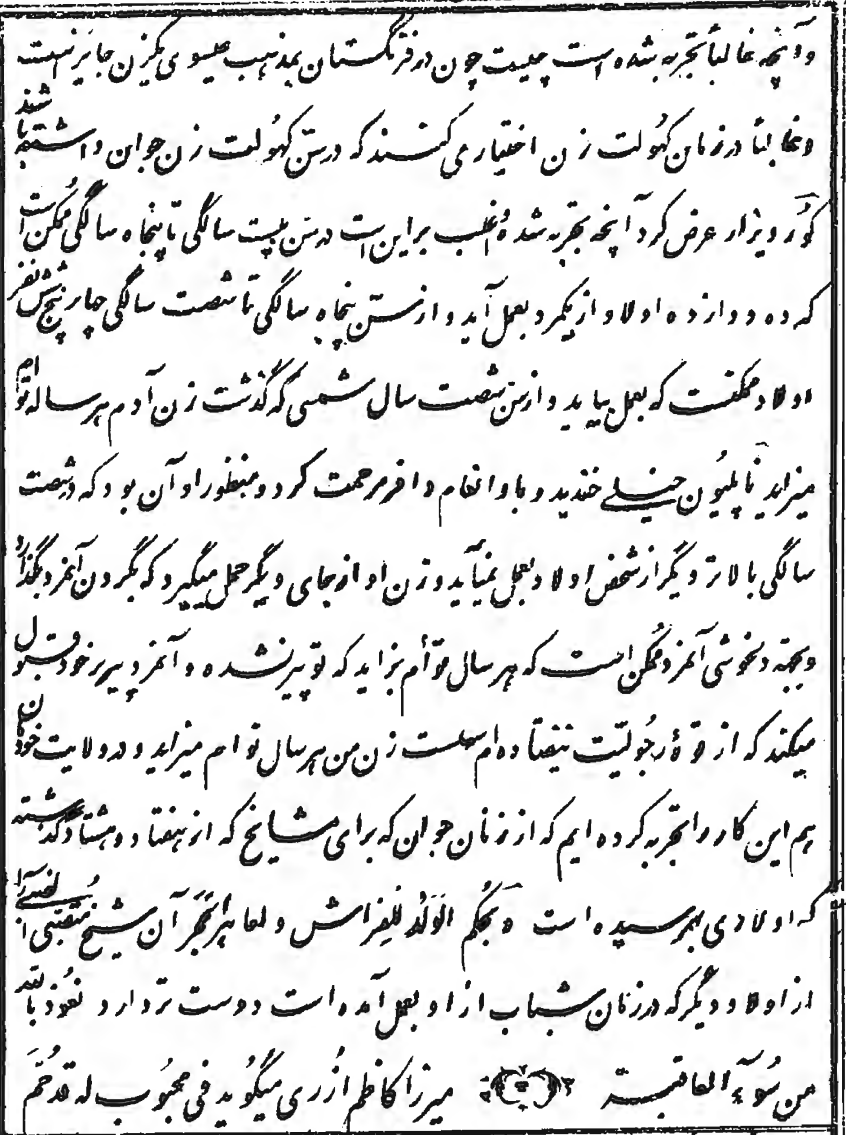 وآنچه غالباً تجربه شده است چیست چون در فرنگستان بمذهب عیسوی یکزن جایز نیست
وغالباً در زمان کهُولت زن اختیار می کنند که در سن کهُولت زن جوان داشته باشند
کوُر ویزار عرض کرد آنچه تجربه شدهٔ اغلب براین است در سن بیست سالگی تا پنجاه سالگی مُمکن است
که ده دوازده اولاد از یکمرد بعمل آید و از سن پنجاه سالگی تا شصت سالگی چار پنج شش نفر
اولاد ممکنست که بعمل بیاید و از سن شصت سال شمسی که گذشت زن آدم هر ساله توام
میزاید ناپلیُون خیلے خندید و باو انعام وافر مرحمت کرد و منظور او آن بود که در شصت
سالگی بالاتر دیگر از شخص اولاد بعمل نمیآید و زن او از جای دیگر حمل میگیرد که بگردن آنمرد بگذارد
وبجهة دلخوشی آنمرد مُمکن است که هر سال توأم بزاید که تو پیر نشده و آنمرد پیر بر خود قبول
میکند که از قوهٔ رجُولیّت نیفتاده ام زن من هر سال توام میزاید و در ولایت خودمان
هم این کار را تجربه کرده ایم که از زنان جوان که برای مشایخ که از هفتاد و هشتاد گذشته
که اولادی بهمرسیده است وبحُکم الوَلَدُ لِلفِراش و للعاهِرِالحَجَر آن شیخ
از اولاد دیگر که در زمان شباب از او بعمل آمده است دوست تر دارد نعُوذ بالله
من سُوءِ العاقبة میرزا کاظم اُزری میگوُید فی محبُوب له قد خُتِمَ